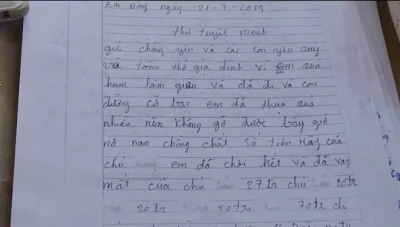 An Đồng ngày 21-7-2019
Thư tuyệt mệnh
gửi chồng yêu và các con yêu quý
toàn thể gia đình vì em quá
ham làm giàu và đã đi va con
đường cờ bạc em đã thua quá
nhiều nên không gỡ được bây giờ
nợ nan chồng chất số tiền
chú em đã chơi hết và đã vay
mất của chú 27tr chú 20tr
20tr 20tr 70tr ch